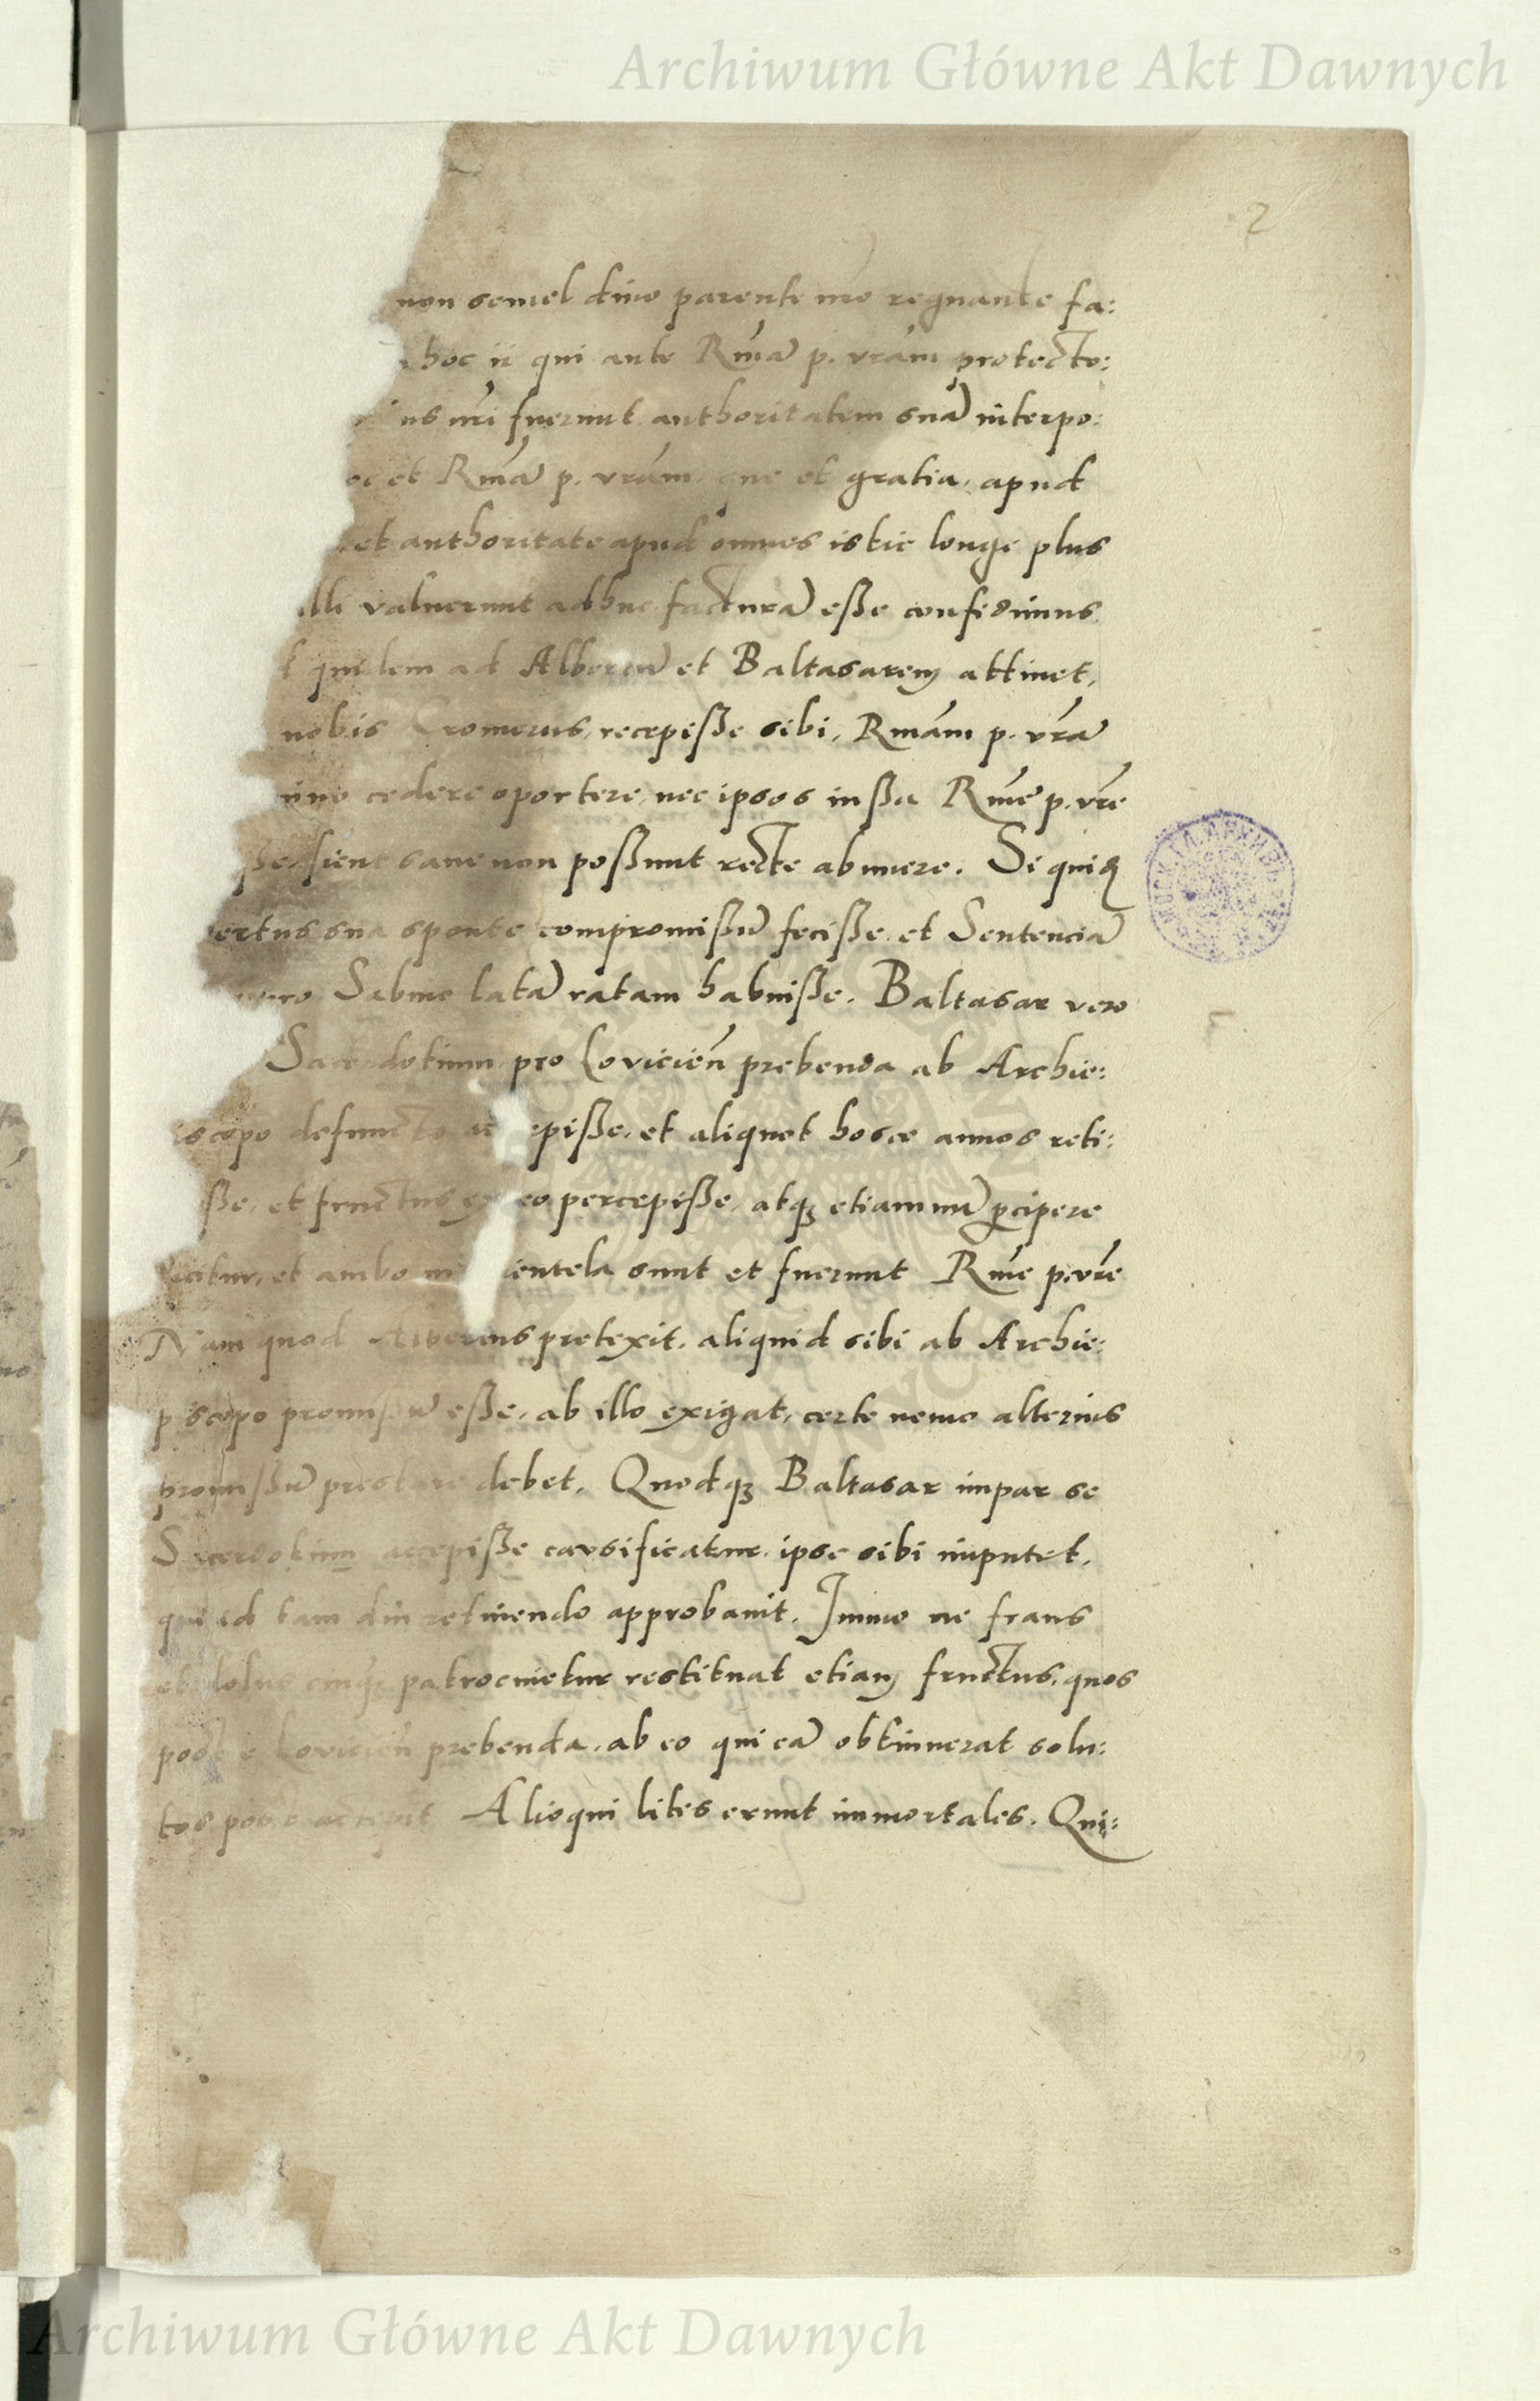 Archiwum Główne Akt Dawnych
2
non semel divo parente nr̃o regnante fa:
hoc ii qui ante Rm̃ā p. vr̃am protecto:
us nr̃i fuerunt authoritatem suā interpo:
et Rm̃ā p. vr̃am, que et gratia, apud
et authoritate apud omnes istic longe plus
illi valuerunt adhuc facturā eße confidimus
quidem ad Albertū et Baltasarem attinet,
nobis Cromerus, recepiße sibi, Rm̃am p. vr̃ā
cedere oportere, nec ipsos iußa Rm̃e p. vr̃e
sane non poßunt recte abnuere. Si quidẽ
ertus sua sponte compromißū feciße, et Sentenciā
latā ratam habuiße. Baltasar vero
Sacerdotium pro Loviciẽn prebenda ab Archie:
iscopo defuncto epiße, et aliquot hosce annos reti:
ße, et fructus ex eo percepiße, atq; etiamnū p̱cipere
et ambo in ientela sunt et fuerunt Rm̃e p. vr̃e
Nam quod Albertus pretexit, aliquid sibi ab Archie:
piscopo promißū eße, ab illo exigat, certe nemo alterius
promißū prestare debet. Quodq; Baltasar impar se
Sacerdotium accepiße causificatur, ipse sibi imputet,
qui id tam diu retinendo approbavit. Immo ne fraus
et dolus cuiq; patrocinetur restituat etiam fructus, quos
Loviciẽn prebenda, ab eo qui eā obtinuerat solu:
tos Alioqui lites erunt immortales. Qui:
Archiwum Główne Akt Dawnych